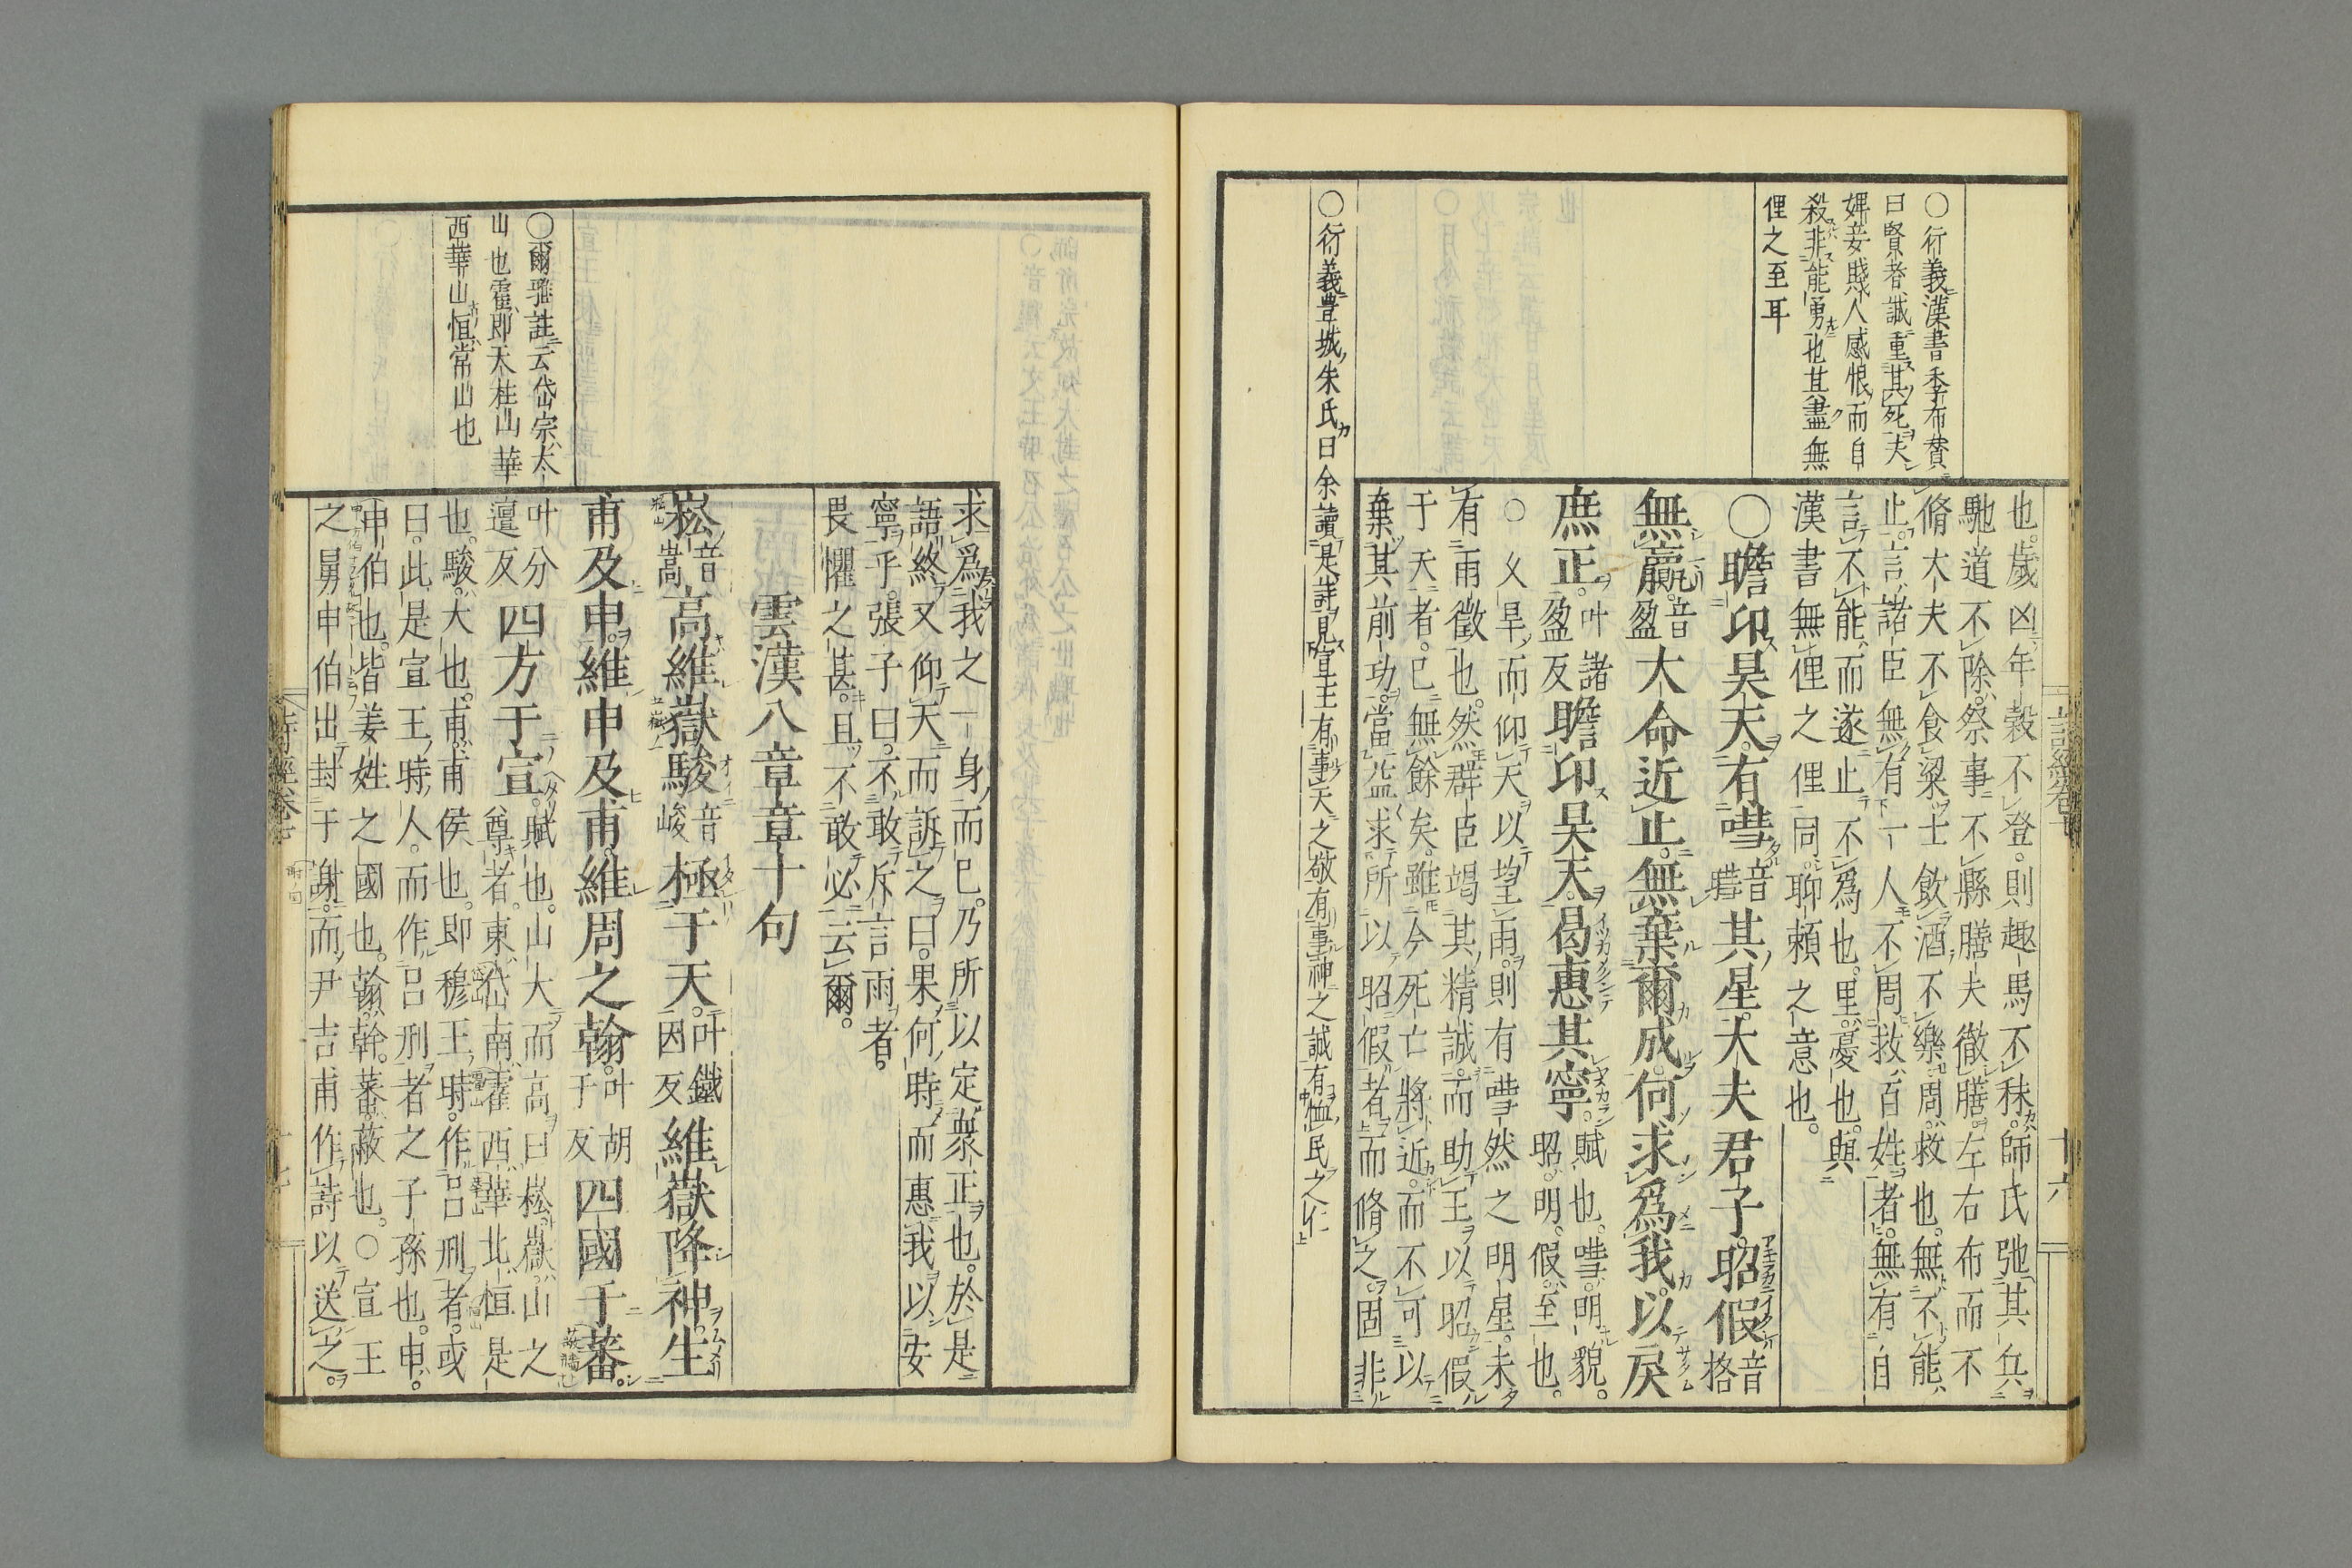 ○衍義漢書季布賛
曰賢者誠重其死夫
婢妾賤人感恨而自
殺非能勇也其畫無
俚之至耳
也歲凶年穀不登則趣馬不秣師氏弛其兵
馳道不除祭事不縣膳夫徹膳左右布而不
脩大夫不食粱士飲酒不樂周救也無不能
止言諸臣無有一人不周救百姓者無有自
言不能而遂止不爲也里憂也與
漢書無俚之俚同聊賴之意也
○瞻卬昊天有嘒音其星大夫君子昭假音格
無贏音盈大命近止無棄爾成何求爲我以戾
庶正叶諸盈反瞻卬昊天曷惠其寧賦也嘒明貌昭明假至也
○乂旱而仰天以望雨則有嘒然之明星未
有雨徵也然群臣竭其精誠而助王以昭假
于天者已無餘矣雖今死亡將近而不可以
棄其前功當益求所以昭假者而脩之固非
○衍義豊城朱氏曰余讀是詩見宣王有事天之敬有事神之誠有恤民之仁
詩經卷七
十六
求爲我之一身而已乃所以定衆正也於是
語終又仰天而訴之曰果何時而惠我以安
寧乎張子曰不敢斥言雨者
畏懼之甚且不敢必云爾
雲漢八章章十句
崧音嵩高維嶽駿音峻極于天叶鐵因反維嶽降神生
甫及申維申及甫維周之翰叶胡干反四國于蕃
叶分邅反四方于宣賦也山大而高曰崧嶽山之
尊者東岱南霍西華北恒是
也駿大也甫甫侯也即穆王時作呂刑者或
曰此是宣王時人而作呂刑者之子孫也申
申伯也皆姜姓之國也翰幹蕃蔽也○宣王
之舅申伯出封于謝而尹吉甫作詩以送之
○爾雅註云岱宗太
山也霍即天柱山華
西華山恒常山也
詩經卷七
十七